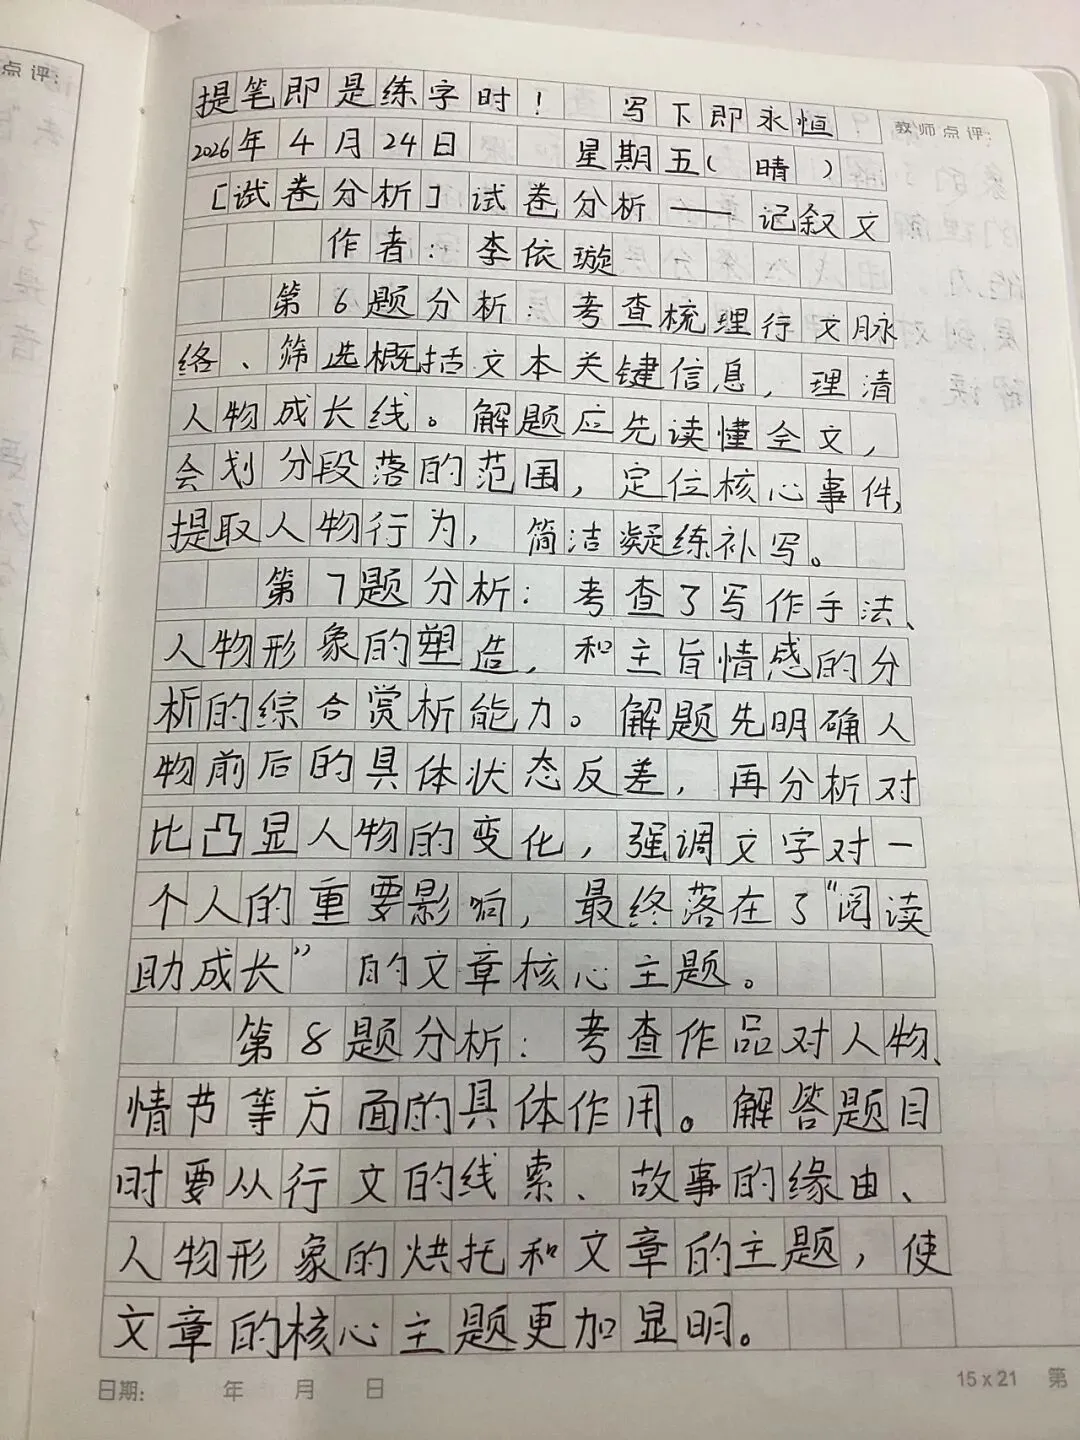 点评:
教师点评:
提笔即是练字时！ 写下即永恒
2026年4月24日 星期五(晴)
[试卷分析]试卷分析——记叙文
作者:李依璇
第6题分析:考查梳理行文脉
络、筛选概括文本关键信息,理清
人物成长线。解题应先读懂全文,
会划分段落的范围,定位核心事件,
提取人物行为,简洁凝练补写。
第7题分析:考查了写作手法、
人物形象的塑造,和主旨情感的分
析的综合赏析能力。解题先明确人
物前后的具体状态反差,再分析对
比凸显人物的变化,强调文字对一
个人的重要影响,最终落在了“阅读
助成长”的文章核心主题。
第8题分析:考查作品对人物、
情节等方面的具体作用。解答题目
时要从行文的线索、故事的缘由、
人物形象的烘托和文章的主题,使
文章的核心主题更加显明。
日期: 年 月 日
15x21 第